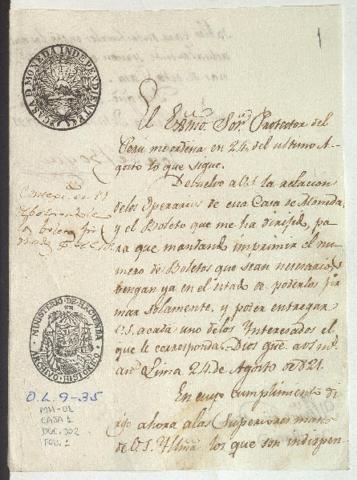 CASA D MONEDA INDEPENDIENTE
1
El Exmo. Sor. Protector del
Peru me ordena en 24, del ultimo A-
gosto lo que sigue.
Debuelvo a V.S. la relacion
de los Operarios de esa Casa de Moneda,
y el Boleto que me ha dirijido, pa
ra que mandando imprimir el nu-
mero de Boletos que sean necesarios
bengan ya en el estado de poderlos fir
mar solamente, y poder entregar
V.S. a cada uno de los Interesados el
que le corresponda. Dios gue. a V.S. ms.
as. Lima 24 de Agosto de 821.
En cuyo cumplimiento di
rijo ahora a las Superiores manos
de V.S. Yltma. los que son indispen-
MINISTERIO DE HACIENDA
ARCHIVO HISTORICO
O.L. 9-35
MH-01
CAJA 1
DOC. 302
FOL. 1